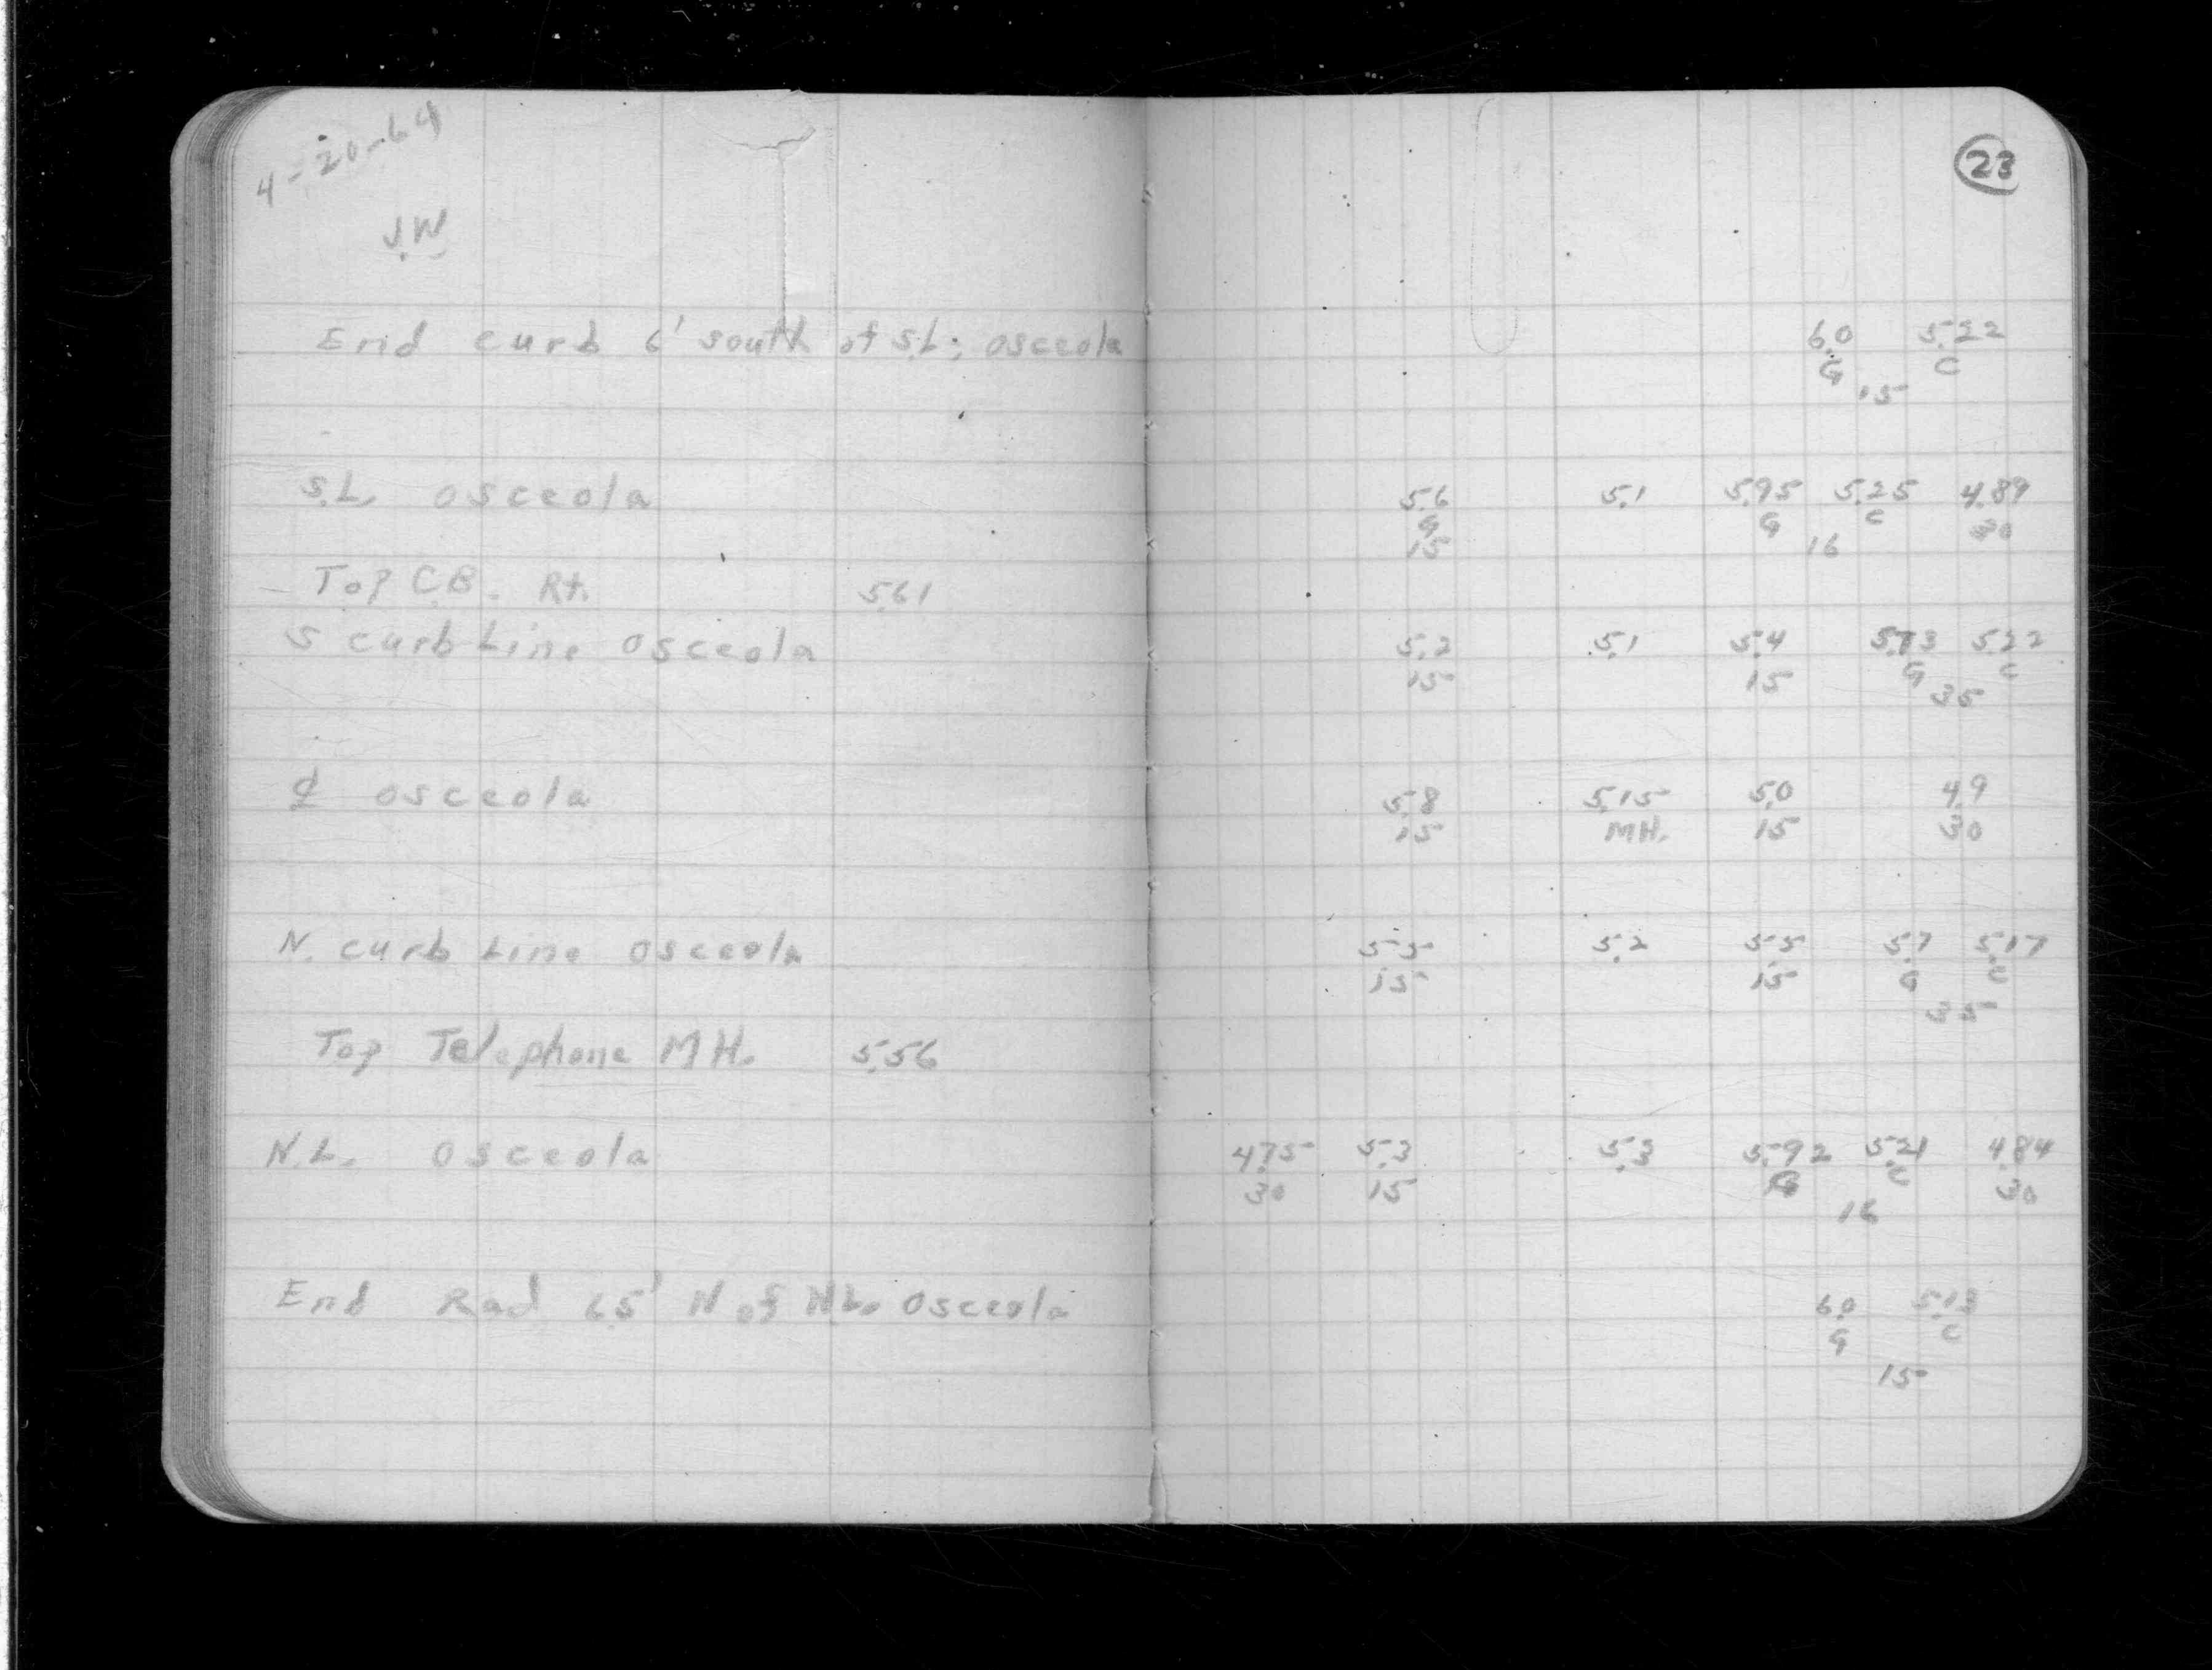 4-20-64
(23)
J.W.
End curb 6' south of S.L. Osceola 6.0 5.22
G C
15
S.L. Osceola 5.6 5.1 5.95 5.25 4.89
G G C 30
15 16
Top C.B. Rt. 5.61
S curb Line Osceola 5.2 5.1 5.4 5.73 5.22
15 15 G C
35
℄ Osceola 5.8 5.15 5.0 4.9
15 MH. 15 30
N. curb Line Osceola 5.5 5.2 5.5 5.7 5.17
15 15 G C
35
Top Telephone MH. 5.56
N.L. Osceola 4.75 5.3 5.3 5.92 5.21 4.84
30 15 G C 30
16
End Rad 6.5' N of N.L. Osceola 6.0 5.13
G C
15